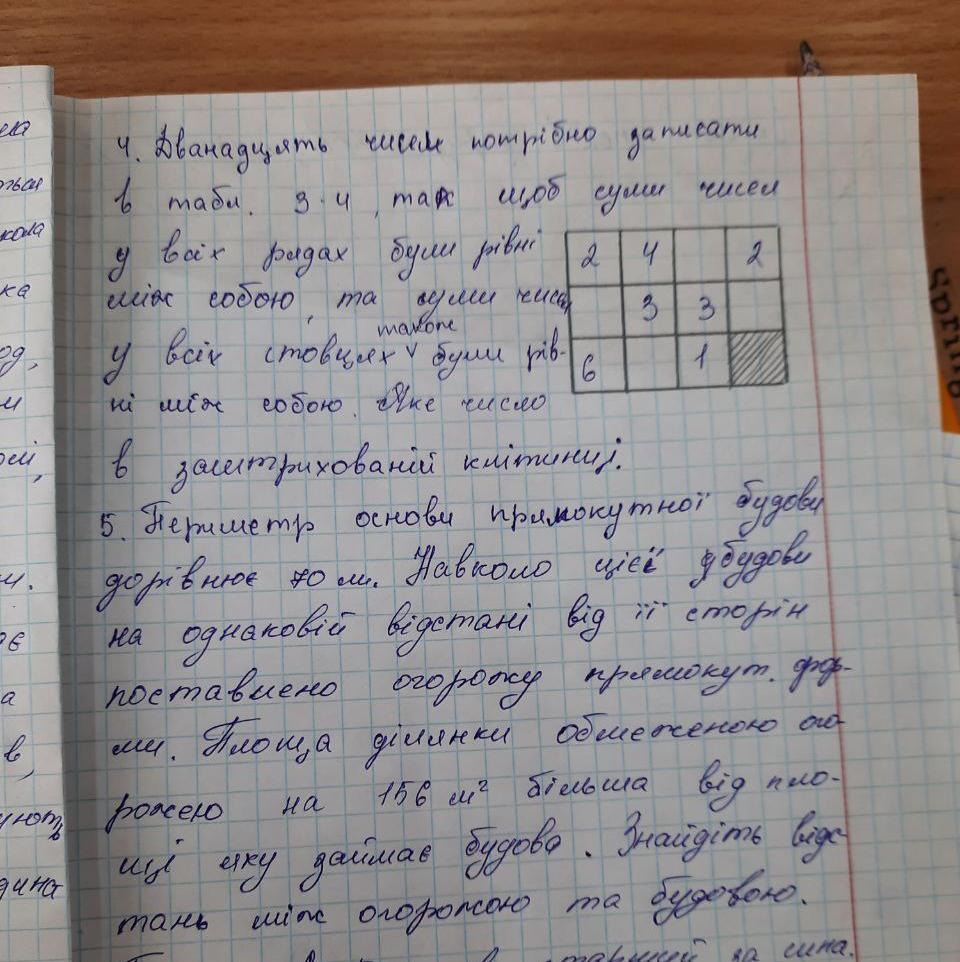 4. Дванадцять чисел потрібно записати
в табл. 3·4, так щоб суми чисел
у всіх рядах були рівні
між собою, та суми чисел
також
у всіх стовцях були рів-
ні між собою. Яке число
в заштрихованій клітинці.
2 4 2
3 3
6 1
5. Периметр основи прямокутної будови
дорівнює 70 м. Навколо цієї будови
на однаковій відстані від її сторін
поставлено огорожу прямокут. фор-
ми. Площа ділянки обмеженою ого-
рожею на 156 м² більша від пло-
щі яку займає будова. Знайдіть відс-
тань між огорожою та будовою.
старший за сина.
ка
од,
м
а
в,
дина
Spring